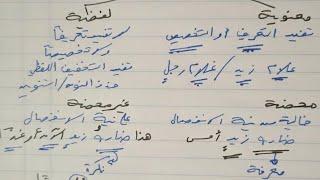 معنوية لفظية
تفيد التعريف أو التخصيص لا تفيد تعريفاً
ولا تخصيصاً
غلام زيد / غلام رجل تفيد التخفيف اللفظي
حذف النون / التنوين
محضة غير محضة
خالية من نية الانفصال على نية الانفصال
ضارب زيد أمس هذا ضارب زيد الآن أو غداً
معرفة نكرة